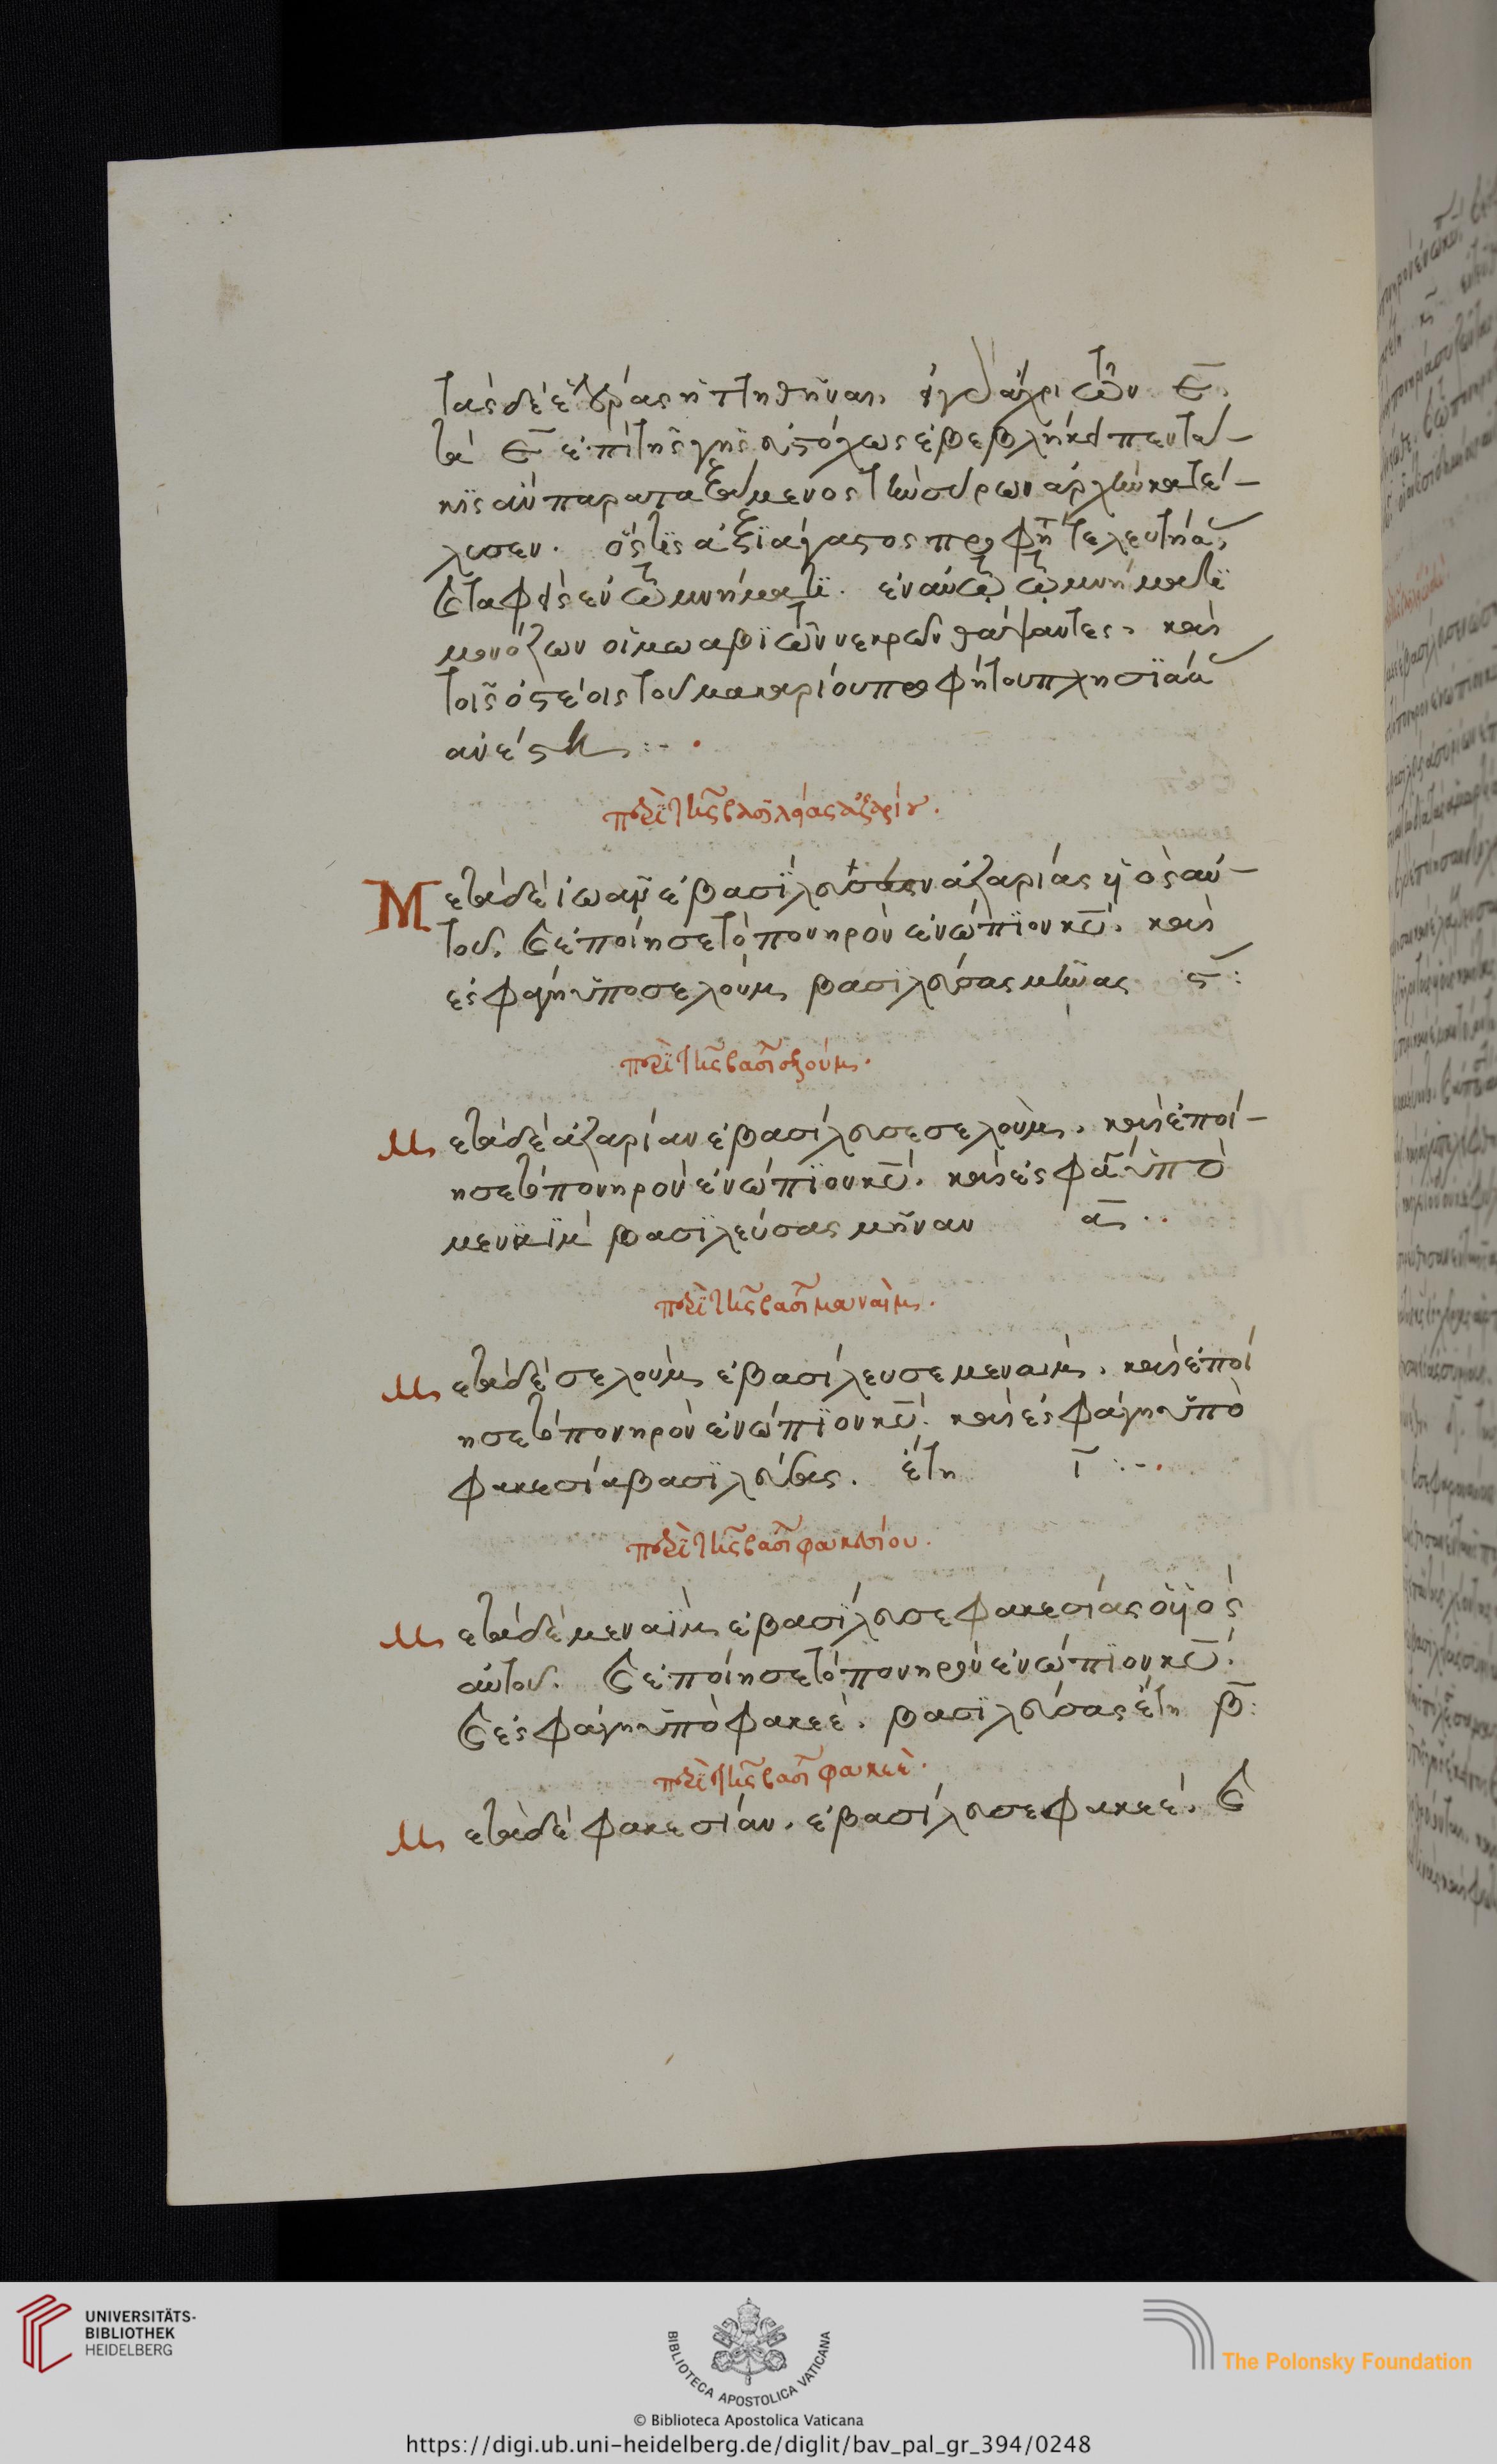 τὰς δὲ ἔχθρας ἡττηθῆναι,
τὰ ε̄ ἐπὶ τῆς γῆς εὐστόχως ἐβεβλήκει πεντά-
κις ἂν παραταξάμενος τὴν σύρων ἀρχὴν κατέ-
λυσεν. ὅστις ἀξιάγαστος προφήτης τελευτήσας
καὶ ταφεὶς ἐν τῷ μνήματι. ἐν αὐτῷ τῷ μνήματι
μονόζων οἱ μωαβῖται νεκρὸν θάψαντες, καὶ
τοῖς ὀστέοις τοῦ μακαρίου προφήτου πλησιάσας
ἀνέστη :-
περὶ τῆς βασιλείας ἀζαρίου.
Μετὰ δὲ ἰωαμ ἐβασίλευσεν ἀζαρίας υἱὸς αὐ-
τοῦ. καὶ ἐποίησε τὸ πονηρὸν ἐνώπιον κ̅υ̅. καὶ
ἐσφάγη ὑπὸ σελοὺμ βασιλεύσας μῆνας ς̄ :
περὶ τῆς βασι σελούμ.
Μετὰ δὲ ἀζαρίαν ἐβασίλευσε σελοὺμ. καὶ ἐποί-
ησε τὸ πονηρὸν ἐνώπιον κ̅υ̅. καὶ ἐσφάγη ὑπὸ
μεναῒμ βασιλεύσας μῆναν ᾱ ..
περὶ τῆς βασι μαναὶμ.
Μετὰ δὲ σελοὺμ ἐβασίλευσε μεναὶμ. καὶ ἐποί
ησε τὸ πονηρὸν ἐνώπιον κ̅υ̅. καὶ ἐσφάγη ὑπὸ
φακεσία βασιλεύσας. ἔτη ῑ :-.
περὶ τῆς βασι φακεσίου.
Μετὰ δὲ μεναῒμ ἐβασίλευσε φακεσίας ὁ υἱὸς
αὐτοῦ. καὶ ἐποίησε τὸ πονηρὸν ἐνώπιον κ̅υ̅.
καὶ ἐσφάγη ὑπὸ φακεὲ. βασιλεύσας ἔτη β̄ :
περὶ τῆς βασι φακεὲ.
Μετὰ δὲ φακεσίαν. ἐβασίλευσε φακεέ. καὶ
UNIVERSITÄTS-
BIBLIOTHEK
HEIDELBERG
BIBLIOTECA APOSTOLICA VATICANA
The Polonsky Foundation
© Biblioteca Apostolica Vaticana
https://digi.ub.uni-heidelberg.de/diglit/bav_pal_gr_394/0248